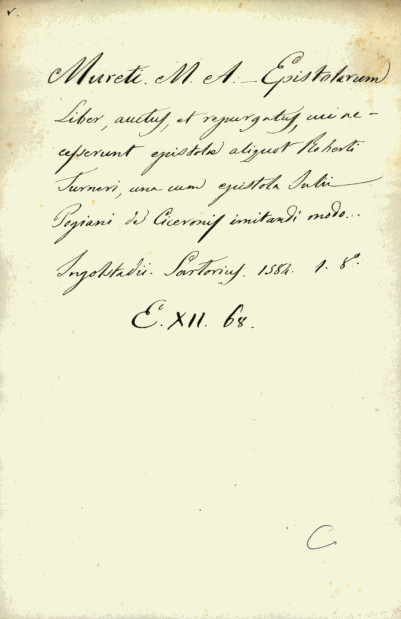 v.
Mureti. M. A. – Epistolarum
Liber, auctus, et repurgatus, cui ac-
cesserunt epistolæ aliquot Roberti
Turneri, una cum epistola Julii
Pogiani de Ciceronis imitandi modo...
Ingolstadii. Sartorius. 1584. 1. 8º.
E. XII. 68.
C